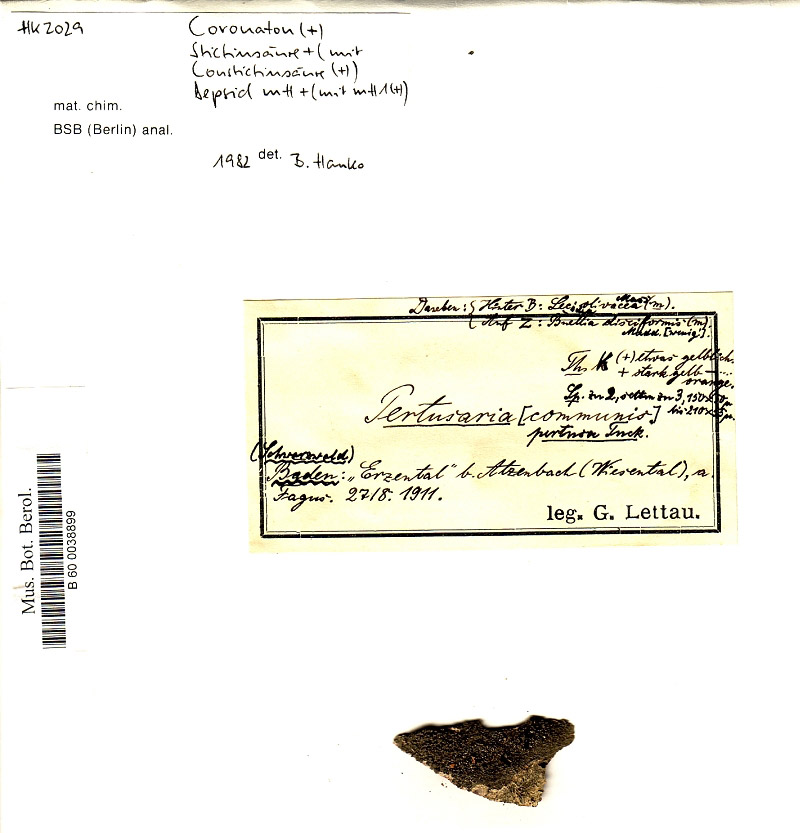 HK 2029
Coronaton (+)
Stictinsäure + (mit
Constictinsäure (+))
Depsid mH + (mit mH1(+))
mat. chim.
BSB (Berlin) anal.
1982 det. B. Hanko
Daneben: { Hinter B: Leci. olivacea Mass (m).
{ Auf Z: Buellia disciformis (m).
Mudd. [wenig].
Th. K (+) etwas gelblich.
+ stark gelb — ....
orange.
Sp. zu 2, selten zu 3, 150x50 µ
bis 210x
Pertusaria [communis]
pertusa Tuck.
(Schwarzwald)
Baden: „Erzental" b. Atzenbach (Wiesental), a.
Fagus. 27/8. 1911.
leg. G. Lettau.
Mus. Bot. Berol.
B 60 0038899